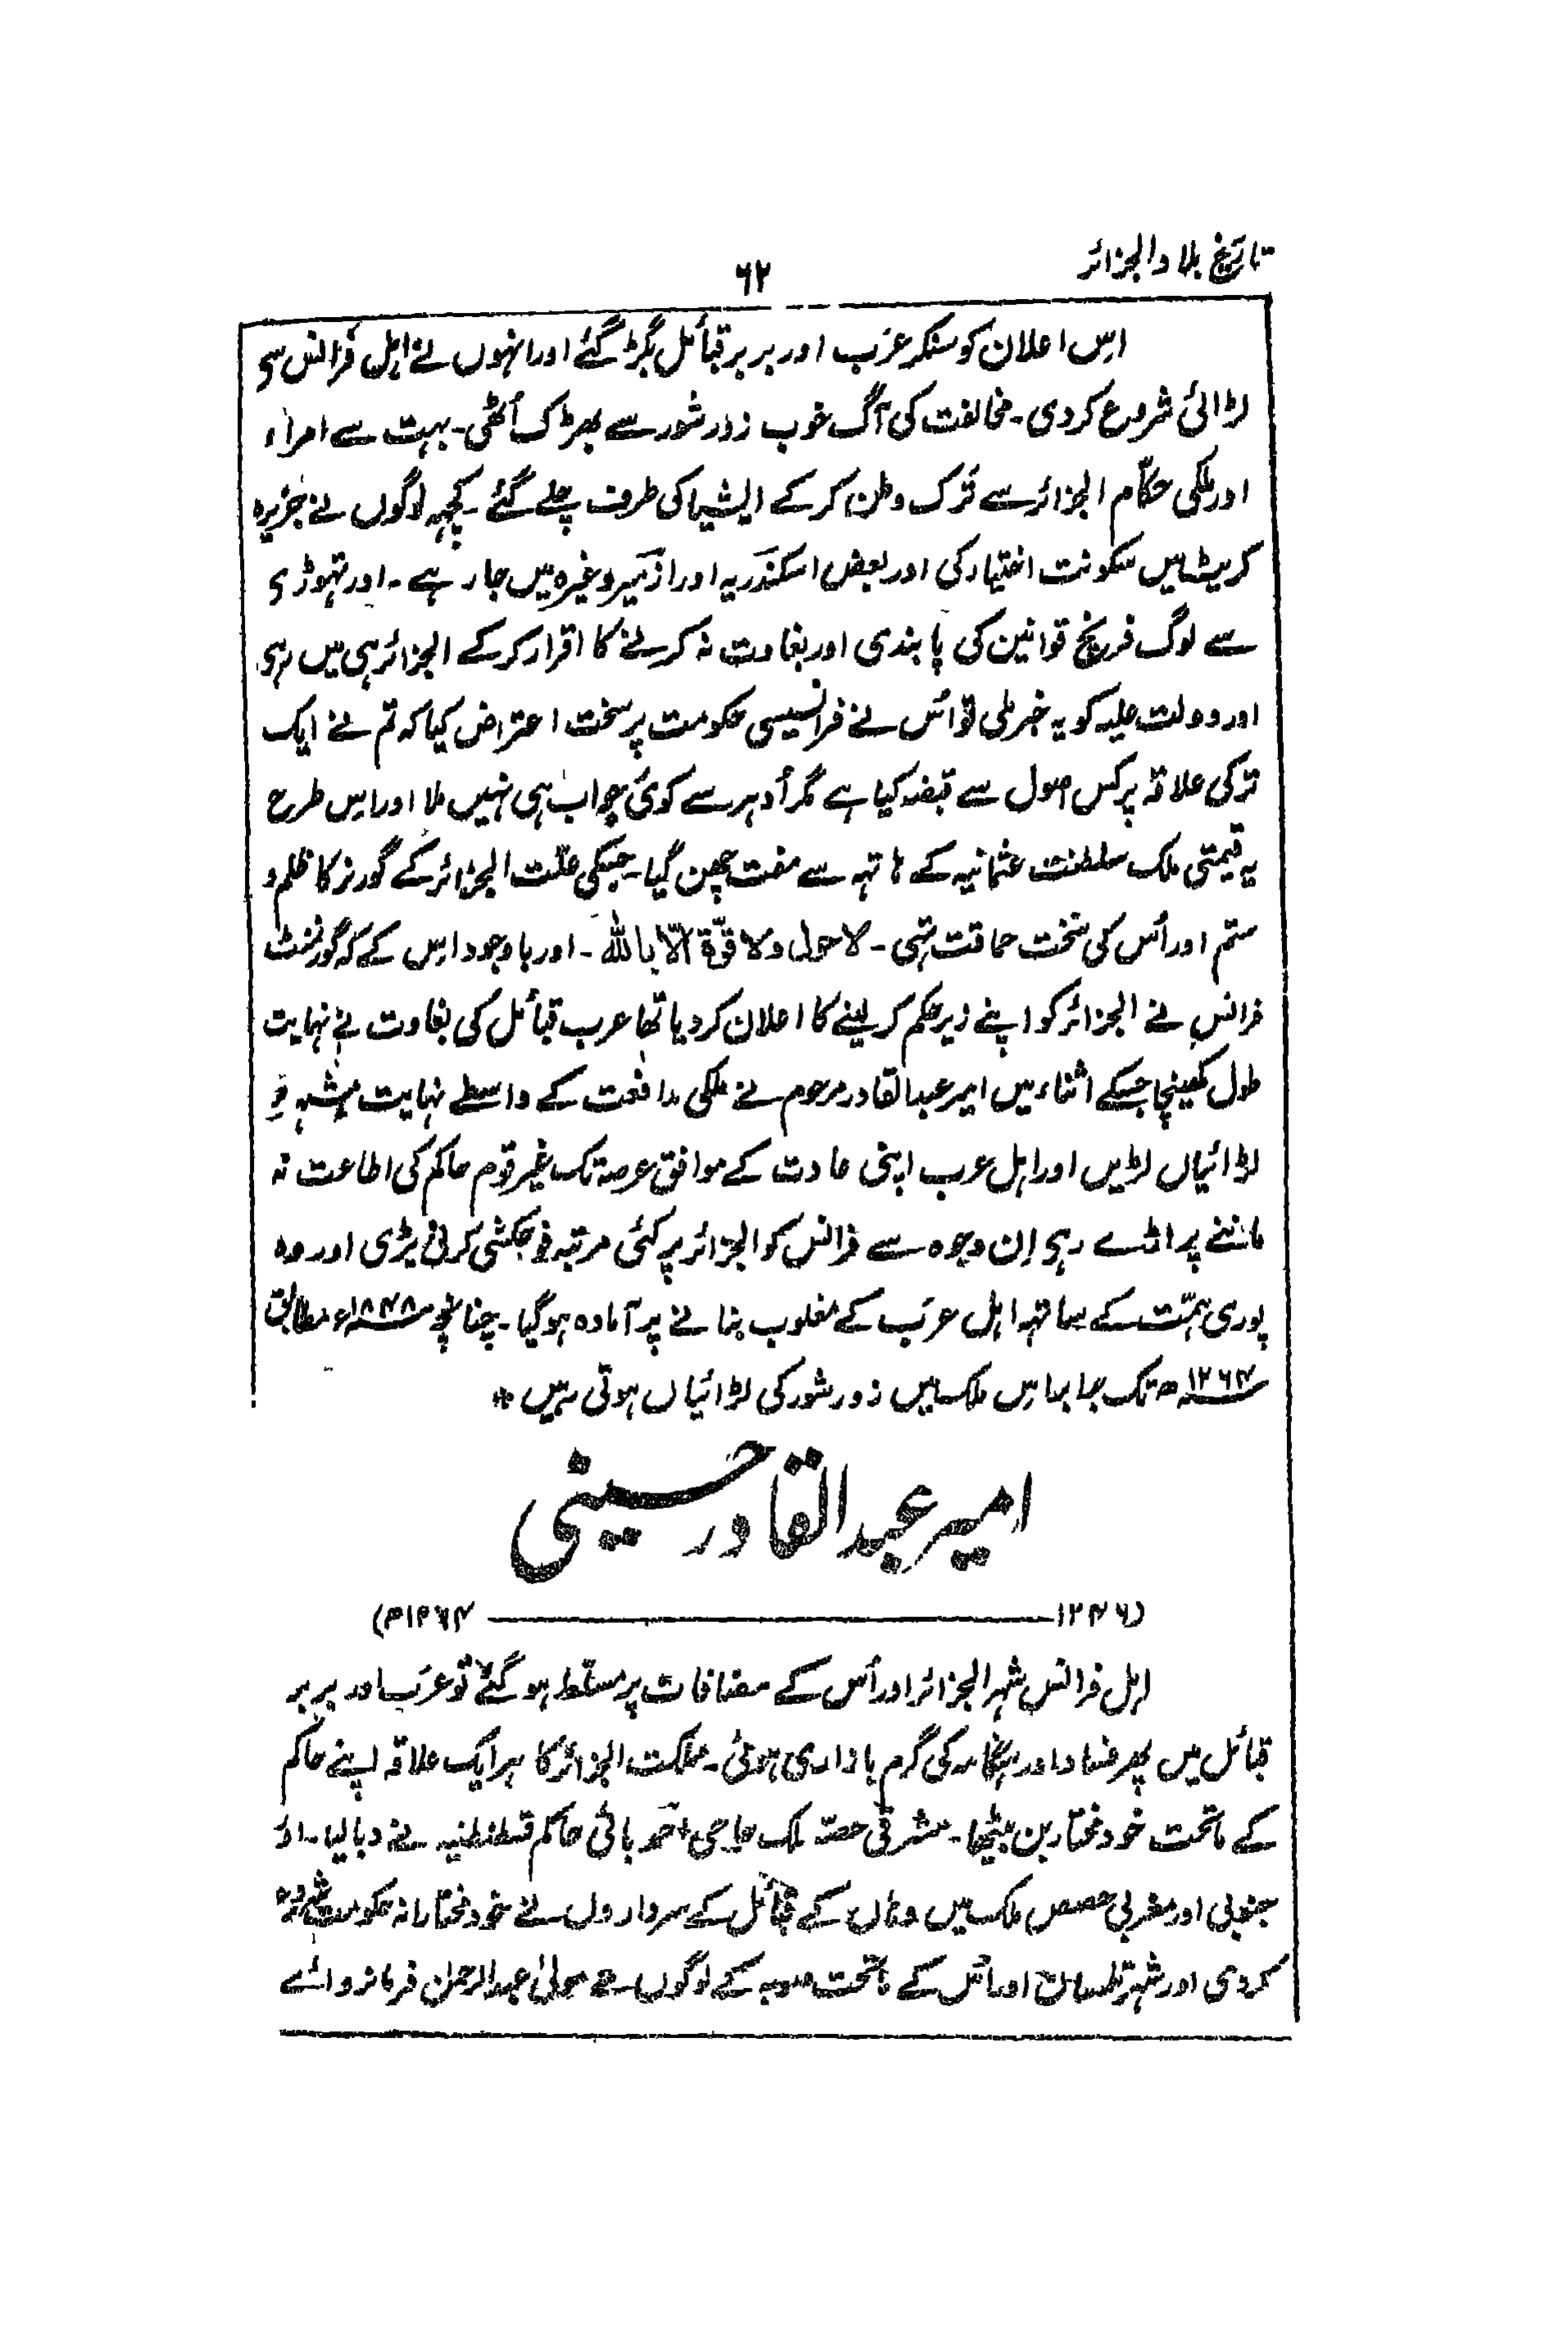 تاریخ بلاد الجزائر
۶۲
اِس اعلان کو سنکر عرَب اور بربر قبائل بگڑ گئے اور انہوں نے اہل فرانس سی
لڑائی شروع کردی۔ مخالفت کی آگ خوب زور شور سے بھڑک اُٹھی۔ بہت سے امراء
اور ملکی حکّام الجزائر سے تَرک وطن کر کے ایشیا کی طرف چلے گئے۔ کچہہ لوگوں نے جزیرہ
کریٹ میں سکونت اختیار کی اور بعض اسکندَریہ اور ازمَیر وغیرہ میں جا رہے۔ اور تہوڑی
سے لوگ فرینچ قوانین کی پابندی اور بغاوت نہ کرنے کا اقرار کر کے الجزائر ہی میں رہی
اور دولت علیہ کو یہ خبر ملی تو اُس نے فرانسیسی حکومت پر سخت اعتراض کیا کہ تم نے ایک
ترکی علاقہ پر کس اصول سے قبضہ کیا ہے مگر اُدہر سے کوئی جواب ہی نہیں ملا اور اِس طرح
یہ قیمتی ملک سلطنت عثمانیہ کے ہاتہہ سے مفت چھن گیا۔ جسکی علّت الجزائر کے گورنر کا ظلم و
ستم اور اُس کی سخت حماقت تہی۔ لا حول ولا قوّۃ الّا باللّٰہ۔ اور باوجود اِس کے کہ گورنمنٹ
فرانس نے الجزائر کو اپنے زیر حکم کر لینے کا اعلان کر دیا تھا عرب قبائل کی بغاوت نے نہایت
طول کھینچا جسکے اثناء میں امیر عبدالقادر مرحوم نے ملکی مدافعت کے واسطے نہایت
لڑائیاں لڑیں اور اہل عرب اپنی عادت کے موافق عرصہ تک غیر قوم حاکم کی اطاعت نہ
ماننے پر اڑے رہی اِن وجوہ سے فرانس کو الجزائر پر کئی مرتبہ فوجکشی کرنی پڑی اور وہ
پوری ہمّت کے ساتہہ اہل عرَب کے مغلوب بنانے پر آمادہ ہو گیا۔ چنانچہ ۱۸۴۸ء مطابق
۱۲۶۴ھ تک برابر اس ملک میں زور شور کی لڑائیاں ہوتی رہیں *
امیر عبد القادر حسینی
(۱۲۴۶ ——— ۱۲۶۴ھ)
اہل فرانس شہر الجزائر اور اُس کے مضافات پر مسلّط ہو گئے تو عرَب اور بربر
قبائل میں پھر فساد اور ہنگامہ کی گرم بازاری ہوئی۔ مملکت الجزائر کا ہر ایک علاقہ اپنے حاکم
کے ماتحت خود مختار بن بیٹھا۔ مشرقی حصّہ ملک حاجی احمد بائی حاکم قسطنطنیہ نے دبا لیا۔ اور
جنوبی اور مغربی حصص ملک میں وہاں کے قبائل کے سرداروں نے خود مختارانہ حکومت شروع
کردی اور شہر تلمسان اور اُس کے ماتحت صوبہ کے لوگوں نے مولیٰ عبدالرحمٰن فرمانروائے